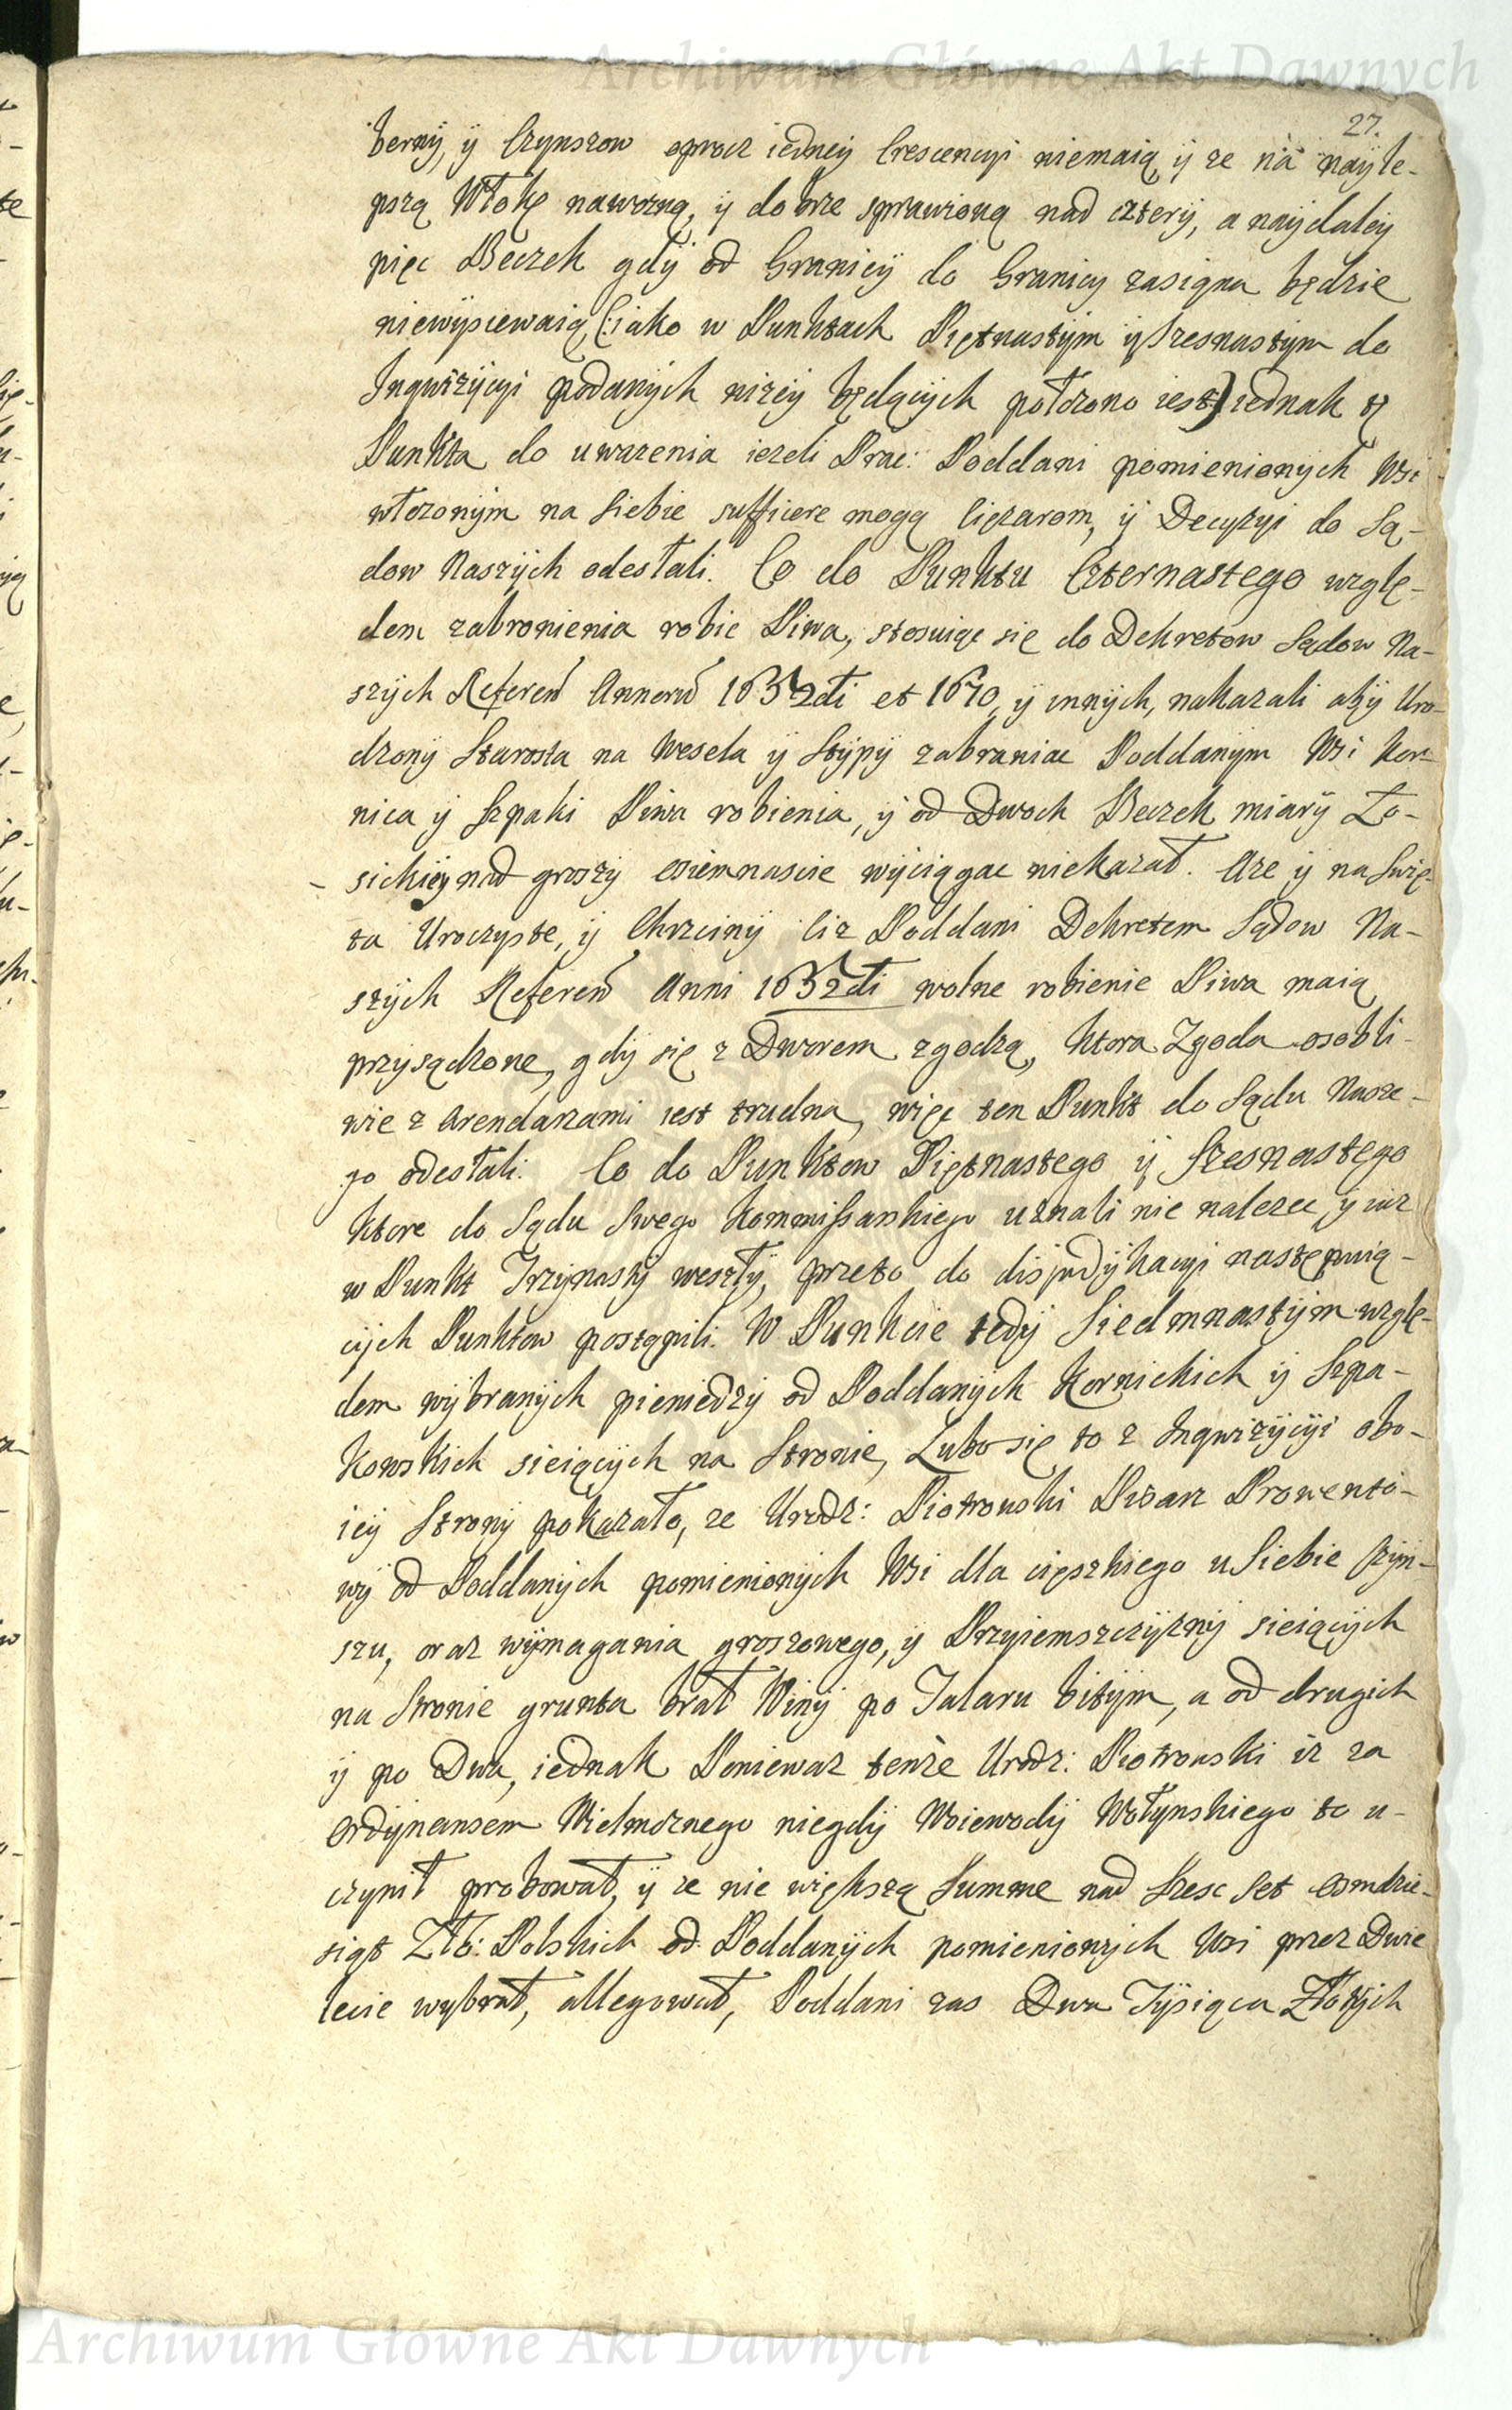 Archiwum Główne Akt Dawnych
27.
berny, ÿ Czynszow oprocz iedney Crescencyi niemaią, ÿ ze nà nayle-
pszą Włokę nawozną, ÿ dobrze sprawioną nad czterÿ, a naydaleÿ
pięc Beczek gdÿ od Granicÿ do Granicy zasiąna będzie
niewÿsiewaią (: iako w Punktach Piętnastÿm ÿ Szesnastÿm do
Inqwizÿcyi podanÿch niżeÿ będącÿch połozono iest) iednak tę
Punkta do uwazenia iezeli Prac: Poddani pomienionÿch Wsi
włozonÿm na siebie sufficere mogą cięzarom, ÿ Decyzyi do Są-
dow Naszÿch odesłali. Co do Punktu Czternastego wzglę-
dem zabronienia robic Piwa, stosuiąc się do Dekretow Sądow Na-
szÿch Referen Annorũ 1632di et 1670, ÿ innÿch, nakazali abÿ Uro-
dzony Starosta na Wesela ÿ Stÿpÿ zabraniac Poddanÿm Wsi Kor-
nica ÿ Szpaki Piwa robienia, ÿ od Dwoch Beczek miarÿ Ło-
sickieÿ nad groszÿ osiemnascie wÿciągac niekazał. Aze ÿ na Swię-
ta Uroczyste, ÿ Chrzcinÿ ciz Poddani Dekretem Sądow Na-
szÿch Referen Anni 1632di wolne robienie Piwa maią
przysądzone, gdÿ się z Dworem zgodzą, ktora Zgoda osobli-
wie z Arendarzami iest trudna, więc ten Punkt do Sądu Nasze-
go odesłali. Co do Punktow Piętnastego ÿ Szesnastego
ktore do Sądu Swego Kommissarskiego uznali nie nalezec, y iuz
w Punkt Trzÿnastÿ weszłÿ, przeto do disjudÿkacyi następuią-
cÿch Punktow postąpili. W Punkcie tedÿ Siedmnastÿm wzglę-
dem wÿbranÿch pieniedzÿ od Poddanÿch Kornickich ÿ Szpa-
kowskich sieiącÿch na Stronie, Lubo się to z Inqwizÿcÿi obo-
ieÿ Stronÿ pokazało, ze Urodz: Piotrowski Pisarz Prowento-
wÿ od Poddanÿch pomienionÿch Wsi dla cięszkiego u Siebie Czÿn-
szu, oraz wÿmagania groszowego, ÿ Przyiemszczÿznÿ sieiącÿch
na Stronie grunta brał Winÿ po Talaru bitÿm, a od drugich
ÿ po Dwa, iednak Poniewaz tenże Urodz: Piotrowski iz za
ordÿnansem Wielmoznego niegdÿ Woiewodÿ Wołynskiego to u-
czynił probował, ÿ ze nie większą Summe nad Szesc Set osmdzie-
siąt Zło: Polskich od Poddanÿch pomienionÿch Wsi przez Dwie
lecie wybrał, allegował, Poddani zas Dwa Tÿsiąca Złotÿch
Archiwum Główne Akt Dawnych